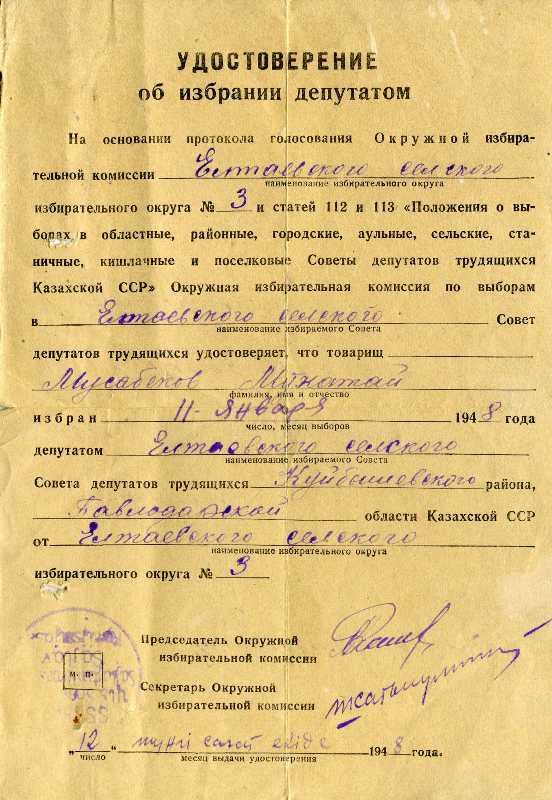 УДОСТОВЕРЕНИЕ
об избрании депутатом
На основании протокола голосования Окружной избира-
тельной комиссии Елтаевского селского
наименование избирательного округа
избирательного округа № 3 и статей 112 и 113 «Положения о вы-
борах в областные, районные, городские, аульные, сельские, ста-
ничные, кишлачные и поселковые Советы депутатов трудящихся
Казахской ССР» Окружная избирательная комиссия по выборам
в Елтаевского селского Совет
наименование избираемого Совета
депутатов трудящихся удостоверяет, что товарищ
Мусабеков Минатай
фамилия, имя и отчество
избран 11 - января 1948 года
число, месяц выборов
депутатом Елтаевского селского
наименование избираемого Совета
Совета депутатов трудящихся Куйбышевского района,
Павлодарской области Казахской ССР
от Елтаевского селского
наименование избирательного округа
избирательного округа № 3
Председатель Окружной
избирательной комиссии
Секретарь Окружной
избирательной комиссии
М. П.
„12“ 1948 года.
число месяц выдачи удостоверения